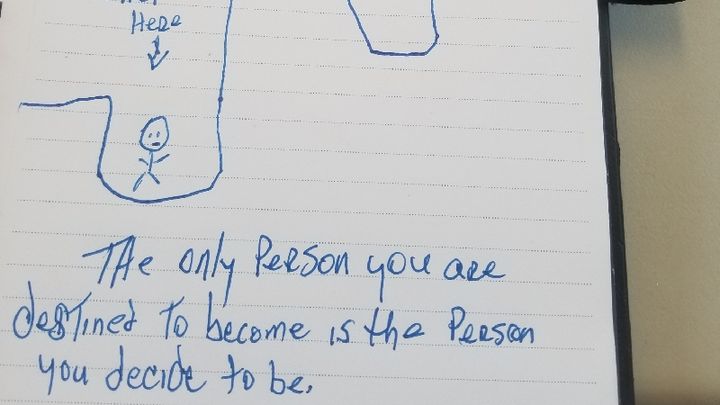 Here
The only Person you are
destined to become is the Person
you decide to be.